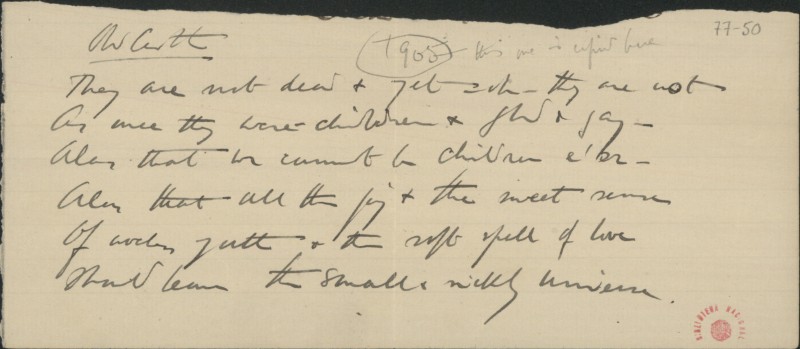 77-50
Old Castle
1905 this one is copied here
They are not dead & yet – oh – they are not
As once they were – children & glad & gay –
Alas that we cannot be children e'er –
Alas that all the joy & the sweet sense
Of youth & the soft spell of love
Should leave the small & sickly Universe.